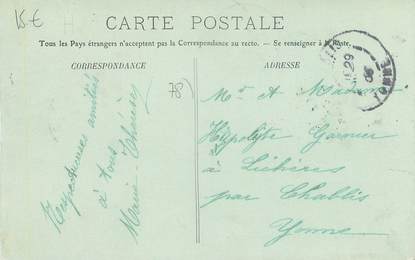 15€
H
CARTE POSTALE
Tous les Pays étrangers n'acceptent pas la Correspondance au recto. — Se renseigner à la Poste.
CORRESPONDANCE
ADRESSE
78
Respectueuses amitiés
à tous
Marie-Thérèse
Mr et Madame
Hippolyte Garnier
à Lichères
par Chablis
Yonne
29
06
YONNE